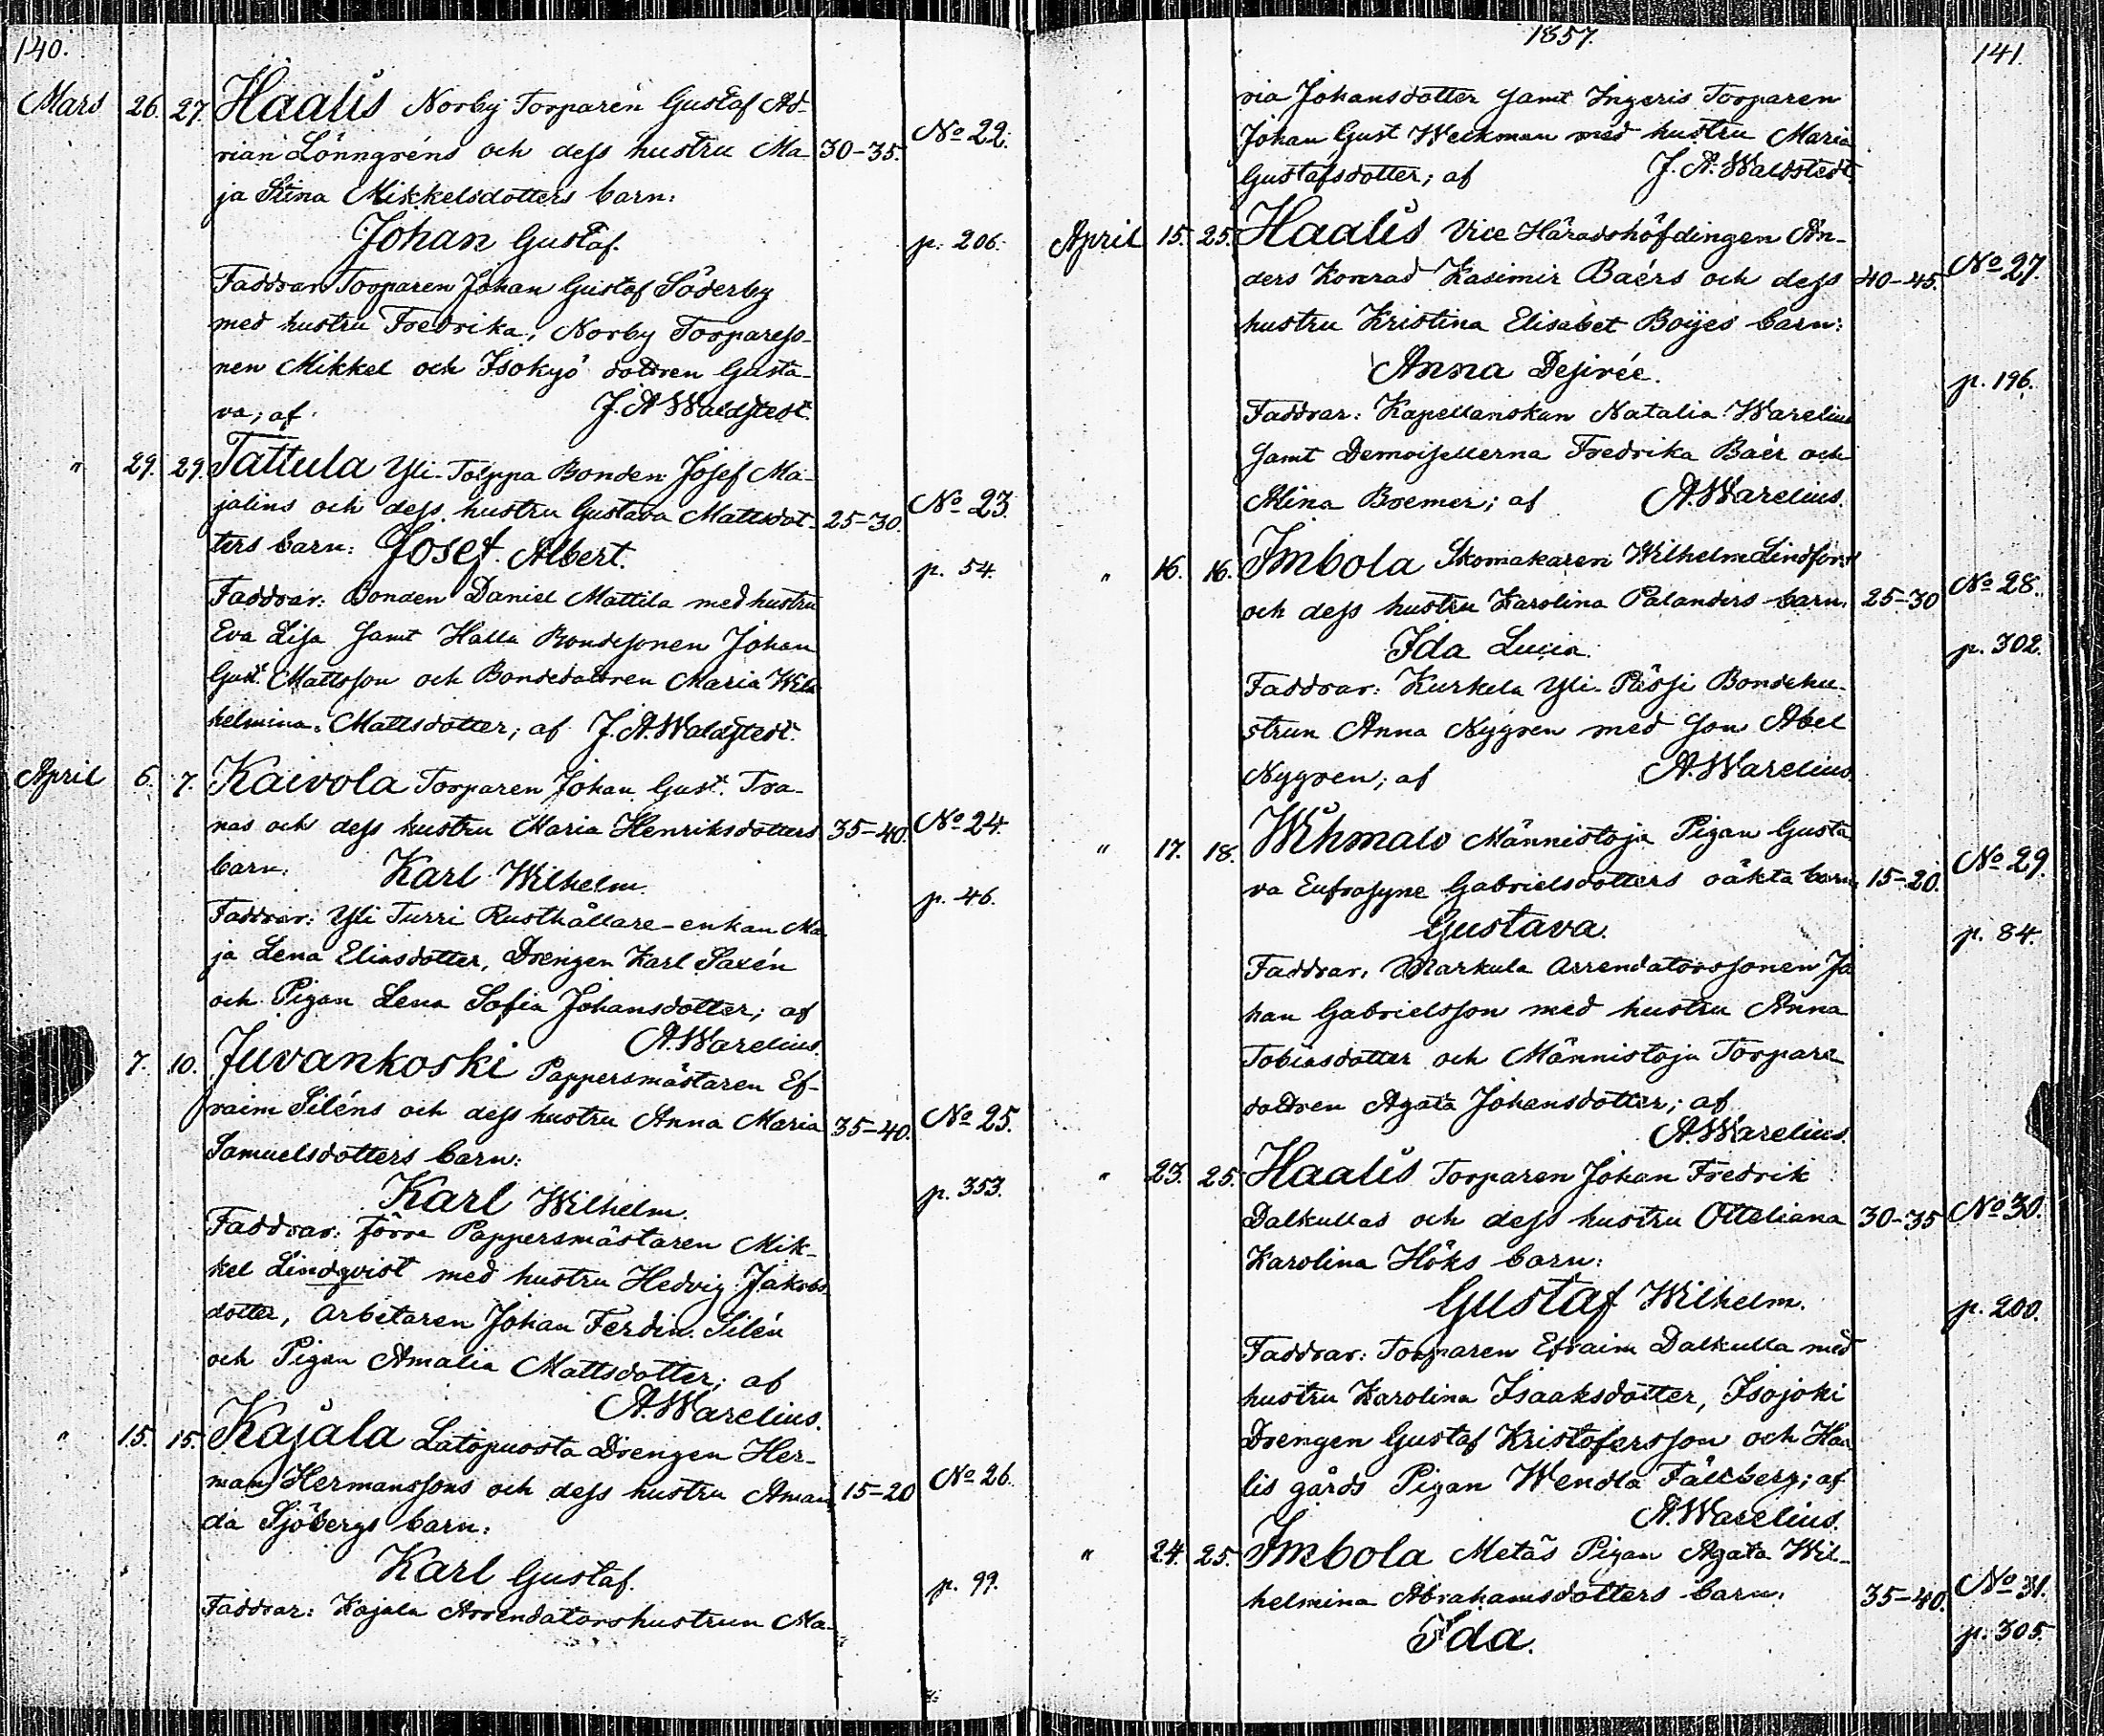 140.
Mars 26. 27. Haalis Norby Torparen Gustaf Ad-
rian Lönngréns och dess hustru Ma- 30-35. No 22.
ja Stina Mikkelsdotters barn:
Johan Gustaf. p. 206.
Faddrar Torparen Johan Gustaf Söderby
med hustru Fredrika, Norby Torpareso-
nen Mikkel och Isokyö dottren Gusta-
va; af J. A Waldstedt.
" 29. 29. Tattula Yli-Tolppa Bonden Josef Ma-
jalins och dess hustru Gustava Mattsdot- 25-30. No 23.
ters barn: Josef Albert. p. 54.
Faddrar: Bonden Daniel Mattila med hustru
Eva Lisa samt Halla Bondesonen Johan
Gust. Mattsson och Bondedottren Maria Wil-
helmina Mattsdotter; af J. A. Waldstedt.
April 6. 7. Kaivola Torparen Johan Gust. Tra-
nas och dess hustru Maria Henriksdotters 35-40. No 24.
barn: Karl Wilhelm. p. 46.
Faddrar: Yli Turri Rusthållare-enkan Ma-
ja Lena Eliasdotter, Drengen Karl Saxén
och Pigan Lena Sofia Johansdotter; af
A. Warelius.
7. 10. Juvankoski Pappersmästaren Ef-
raim Siléns och dess hustru Anna Maria 35-40. No 25.
Samuelsdotters barn:
Karl Wilhelm. p. 353.
Faddrar: förre Pappersmästaren Mik-
kel Lindqvist med hustru Hedvig Jakobs-
dotter, arbetaren Johan Ferdin. Silén
och Pigan Amalia Mattsdotter; af
A. Warelius.
" 15. 15. Kajala Latopuosta Drengen Her-
man Hermanssons och dess hustru Aman- 15-20 No 26.
da Sjöbergs barn:
Karl Gustaf. p. 99.
Faddrar: Kajala Arrendatorshustrun Ma-
1857. 141.
ria Johansdotter samt Ingeris Torparen
Johan Gust Weckman med hustru Maria
Gustafsdotter; af J. A. Waldstedt.
April 15. 25. Haalis Vice Häradshöfdingen An-
ders Konrad Kasimir Baérs och dess 40-45. No 27.
hustru Kristina Elisabet Boijes barn:
Anna Desirée. p. 196.
Faddrar: Kapellanskan Natalia Warelius
samt Demoisellerna Fredrika Baér och
Alina Bremer; af A. Warelius.
" 16. 16. Imbola Skomakaren Wilhelm Lindfors
och dess hustru Karolina Palanders barn: 25-30 No 28.
Ida Lucia. p. 302.
Faddrar: Kurkela Yli-Pässi Bondehu-
strun Anna Nygren med son Abel
Nygren; af A. Warelius.
" 17. 18. Wihmalo Männistoja Pigan Gusta-
va Eufrosyne Gabrielsdotters oäkta barn, 15-20. No 29.
Gustava. p. 84.
Faddrar: Markula Arrendatorssonen Jo
han Gabrielsson med hustru Anna
Tobiasdotter och Männistoja Torpare
dottren Agata Johansdotter; af
A. Warelius.
" 23. 25. Haalis Torparen Johan Fredrik
Dalkullas och dess hustru Otteliana 30-35 No 30.
Karolina Höks barn:
Gustaf Wilhelm. p. 200.
Faddrar: Torparen Efraim Dalkulla med
hustru Karolina Isaaksdotter, Isojoki
Drengen Gustaf Kristofersson och Haa-
lis gårds Pigan Wendla Fällberg; af
A. Warelius.
" 24. 25. Imbola Metäs Pigan Agata Wil-
helmina Abrahamsdotters barn: 35-40. No 31.
Ida. p. 305.